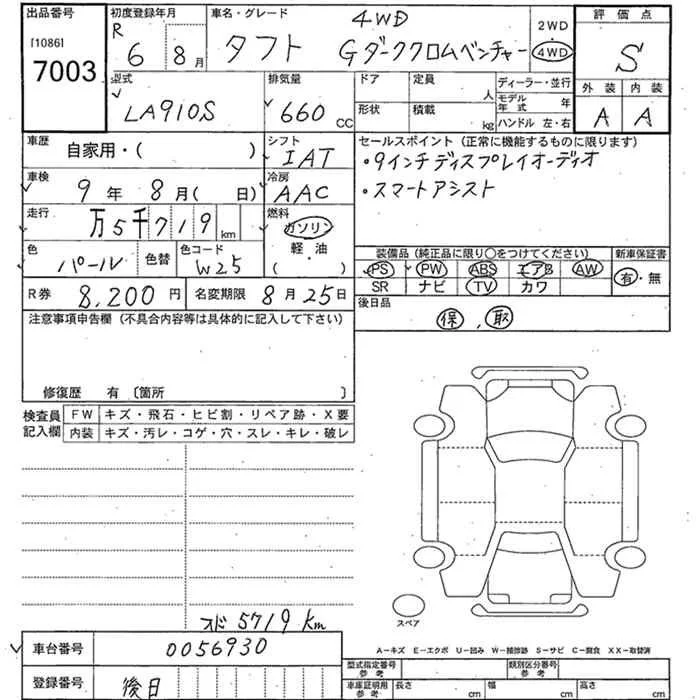 出品番号
[1086]
7003
初度登録年月
R 6 8月
車名・グレード
タフト 4WD Gダーククロムベンチャー
2WD
・
4WD
評価点
S
外装 内装
A A
型式
LA910S
排気量
660 CC
ドア 定員 人
形状 積載 kg
ディーラー・並行
モデル年式 年
ハンドル 左・右
車歴
自家用・( )
シフト
IAT
車検
9年 8月( 日)
冷房
AAC
走行
万5千719 km
燃料
ガソリン
・
軽・油
( )
色
パール
色替
色コード
W25
セールスポイント(正常に機能するものに限ります)
・9インチディスプレイオーディオ
・スマートアシスト
装備品(純正品に限り○をつけてください) 新車保証書
PS PW ABS エアB AW
SR ナビ TV カワ
有・無
R券 8,200円 名変期限 8月25日
後日品
保, 取
注意事項申告欄(不具合内容等は具体的に記入して下さい)
修復歴 有 〔箇所 〕
検査員記入欄
FW キズ・飛石・ヒビ割・リペア跡・X要
内装 キズ・汚レ・コゲ・穴・スレ・キレ・破レ
スペア
5719km
車台番号 0056930
登録番号 後日
A−キズ E−エクボ U−凹み W−補修跡 S−サビ C−腐食 XX−取替済
型式指定番号 参考
類別区分番号 参考
車庫証明用 参考 長さ cm 幅 cm 高さ cm